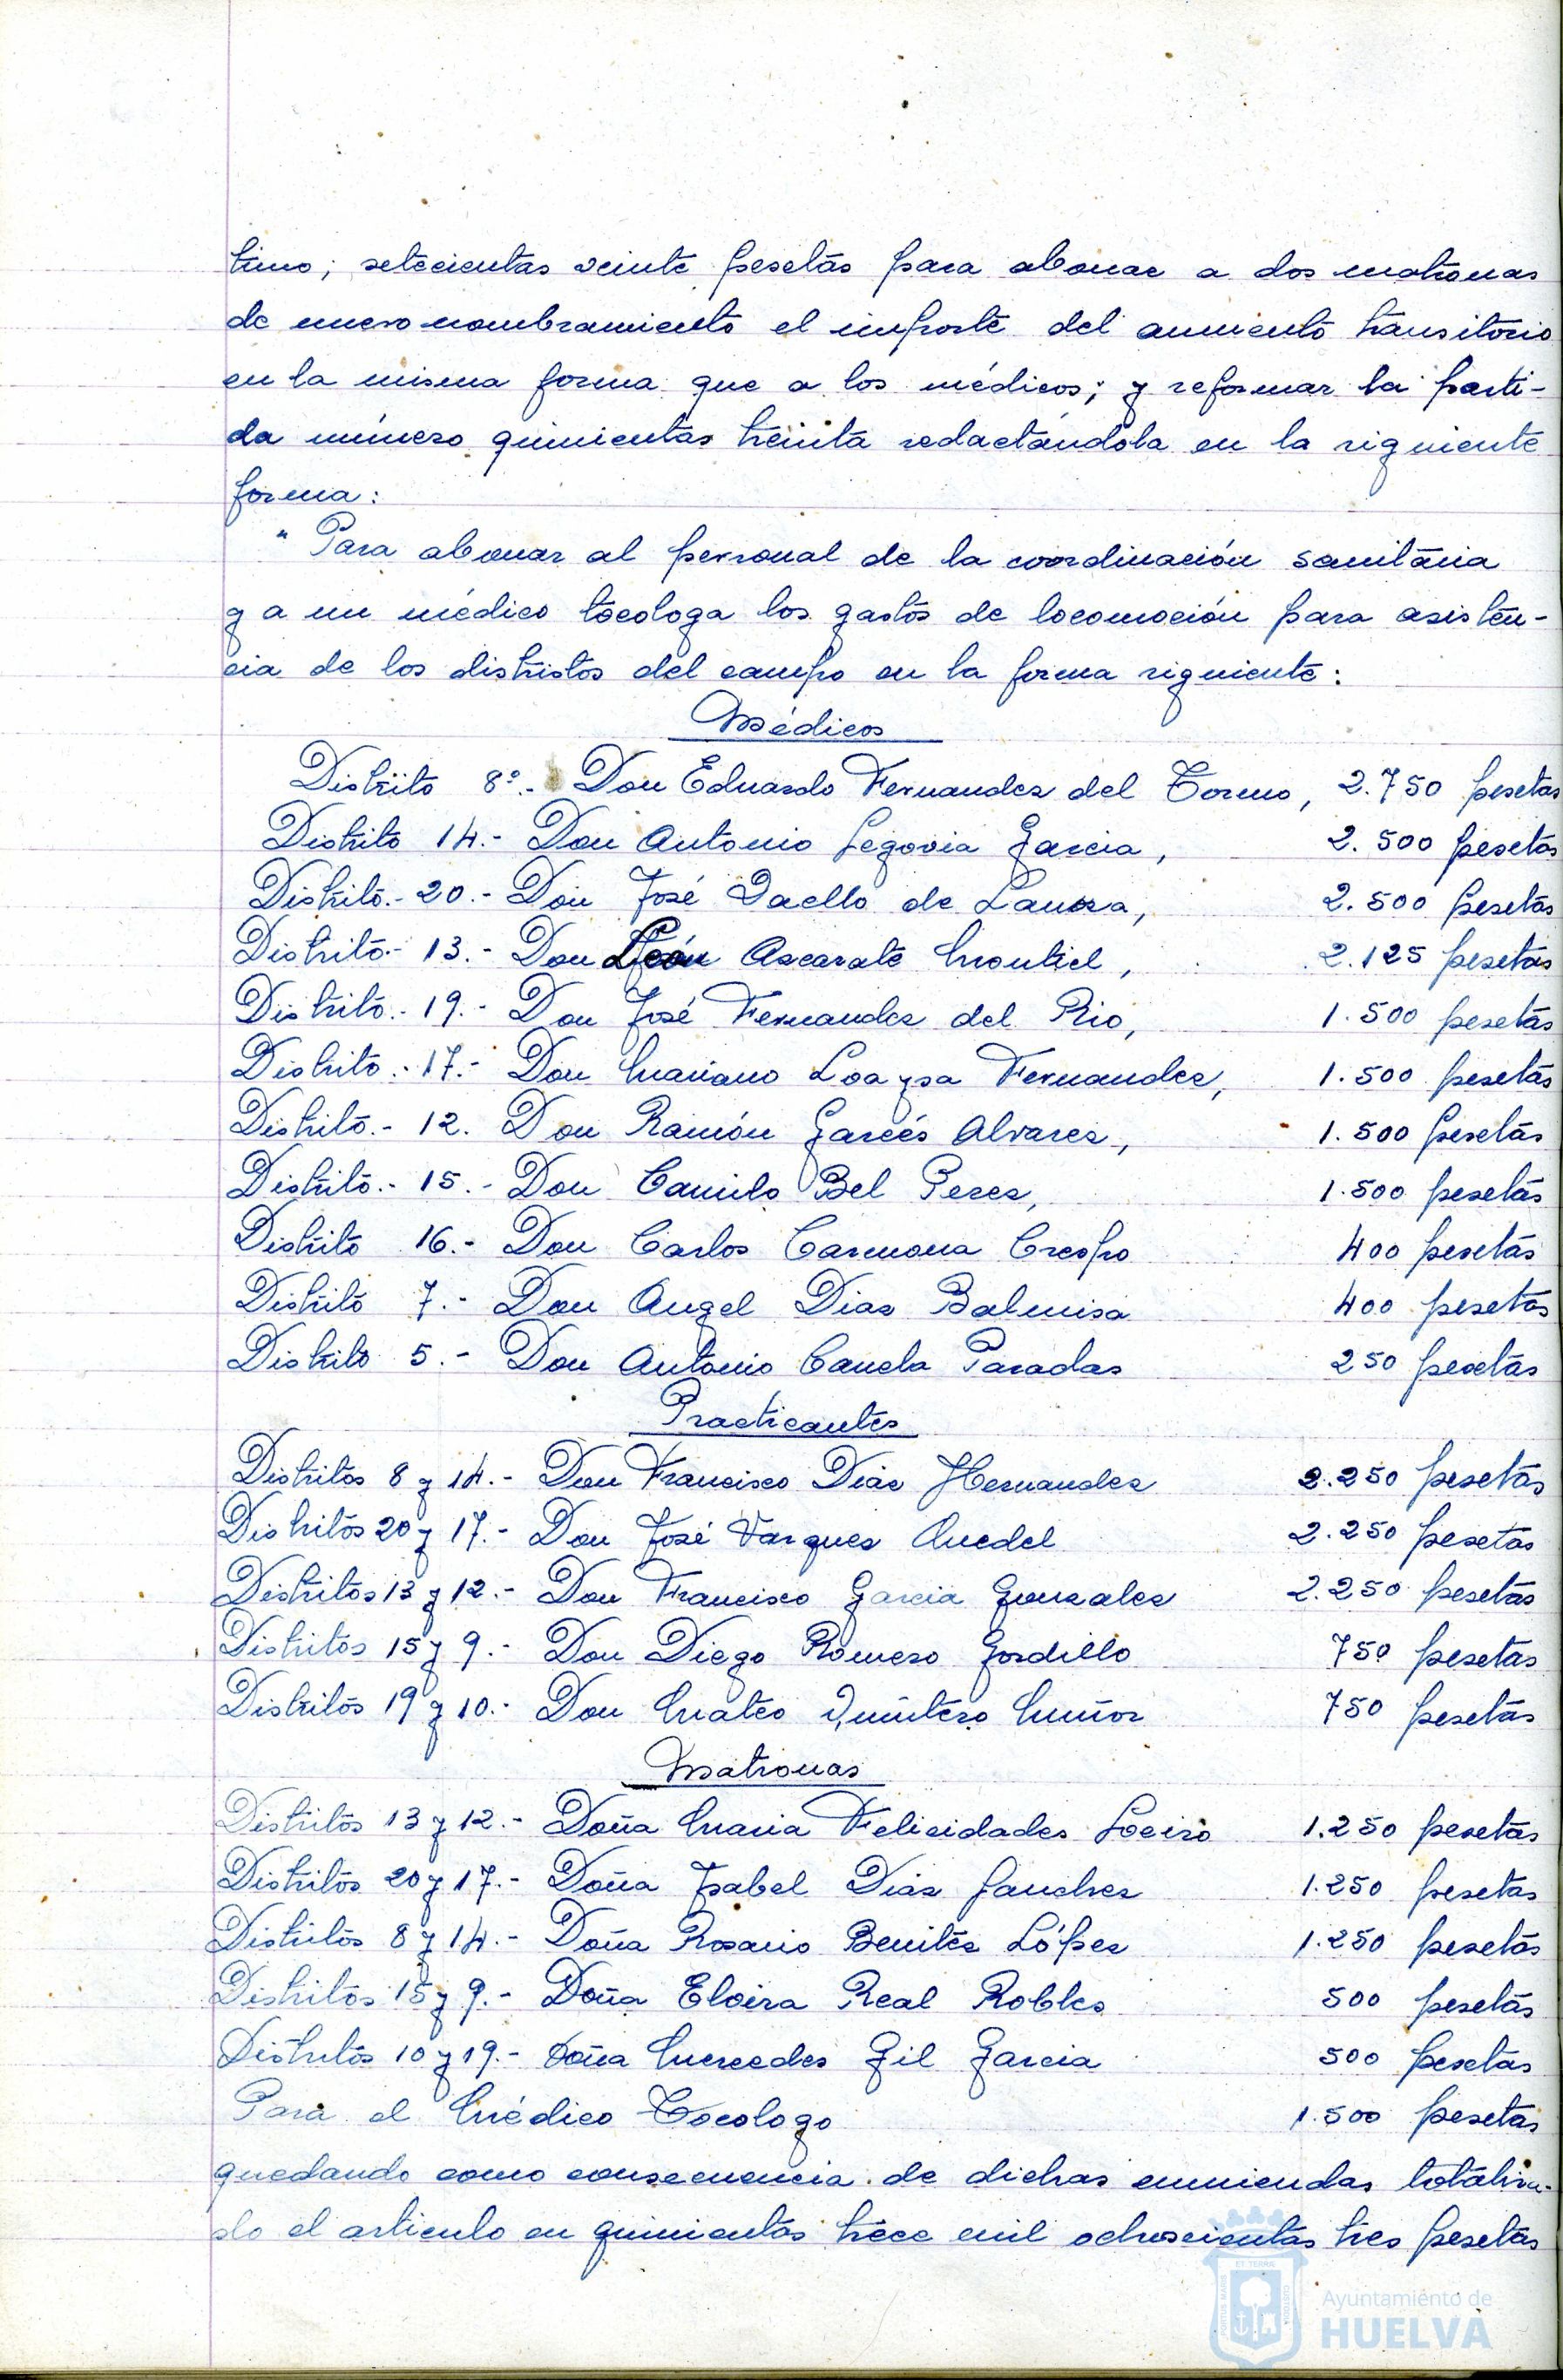 timo; setecientas veinte pesetas para abonar a dos matronas
de nuevo nombramiento el importe del aumento transitorio
en la misma forma que a los médicos; y reformar la parti-
da número quinientas treinta redactándola en la siguiente
forma:
" Para abonar al personal de la coordinación sanitaria
y a un médico tocologa los gastos de locomoción para asisten-
cia de los distristos del campo en la forma siguiente:
Médicos
Distrito 8º.- Don Eduardo Fernandez del Torno, 2.750 pesetas
Distrito 14.- Don Antonio Segovia Garcia, 2.500 pesetas
Distrito.- 20.- Don José Daello de Lanza, 2.500 pesetas
Distrito.- 13.- Don León Azcarate Montiel, 2.125 pesetas
Distrito.- 19.- Don José Fernandez del Rio, 1.500 pesetas
Distrito.- 17.- Don Mariano Loaysa Fernandez, 1.500 pesetas
Distrito.- 12. Don Ramón Garcés Alvarez, 1.500 pesetas
Distrito.- 15.- Don Camilo Bel Perez, 1.500 pesetas
Distrito 16.- Don Carlos Carmona Crespo 400 pesetas
Distrito 7.- Don Angel Diaz Balmisa 400 pesetas
Distrito 5.- Don Antonio Canela Paradas 250 pesetas
Practicantes
Distritos 8 y 14.- Don Francisco Diaz Hernandez 2.250 pesetas
Distritos 20 y 17.- Don José Vazquez 2.250 pesetas
Distritos 13 y 12.- Don Francisco Garcia Gonzalez 2.250 pesetas
Distritos 15 y 9.- Don Diego Romero Gordillo 750 pesetas
Distritos 19 y 10.- Don Mateo Quintero Muñoz 750 pesetas
Matronas
Distritos 13 y 12.- Doña Maria Felicidades Loeiro 1.250 pesetas
Distritos 20 y 17.- Doña Isabel Diaz Sanchez 1.250 pesetas
Distritos 8 y 14.- Doña Rosario Benitez López 1.250 pesetas
Distritos 15 y 9.- Doña Eloira Real Robles 500 pesetas
Distritos 10 y 19.- Doña Mercedes Gil Garcia 500 pesetas
Para el Médico Tocologo 1.500 pesetas
quedando como consecuencia de dichas enmiendas totalizan-
do el articulo en quinientas trece mil ochoscientas tres pesetas
Ayuntamiento de
HUELVA